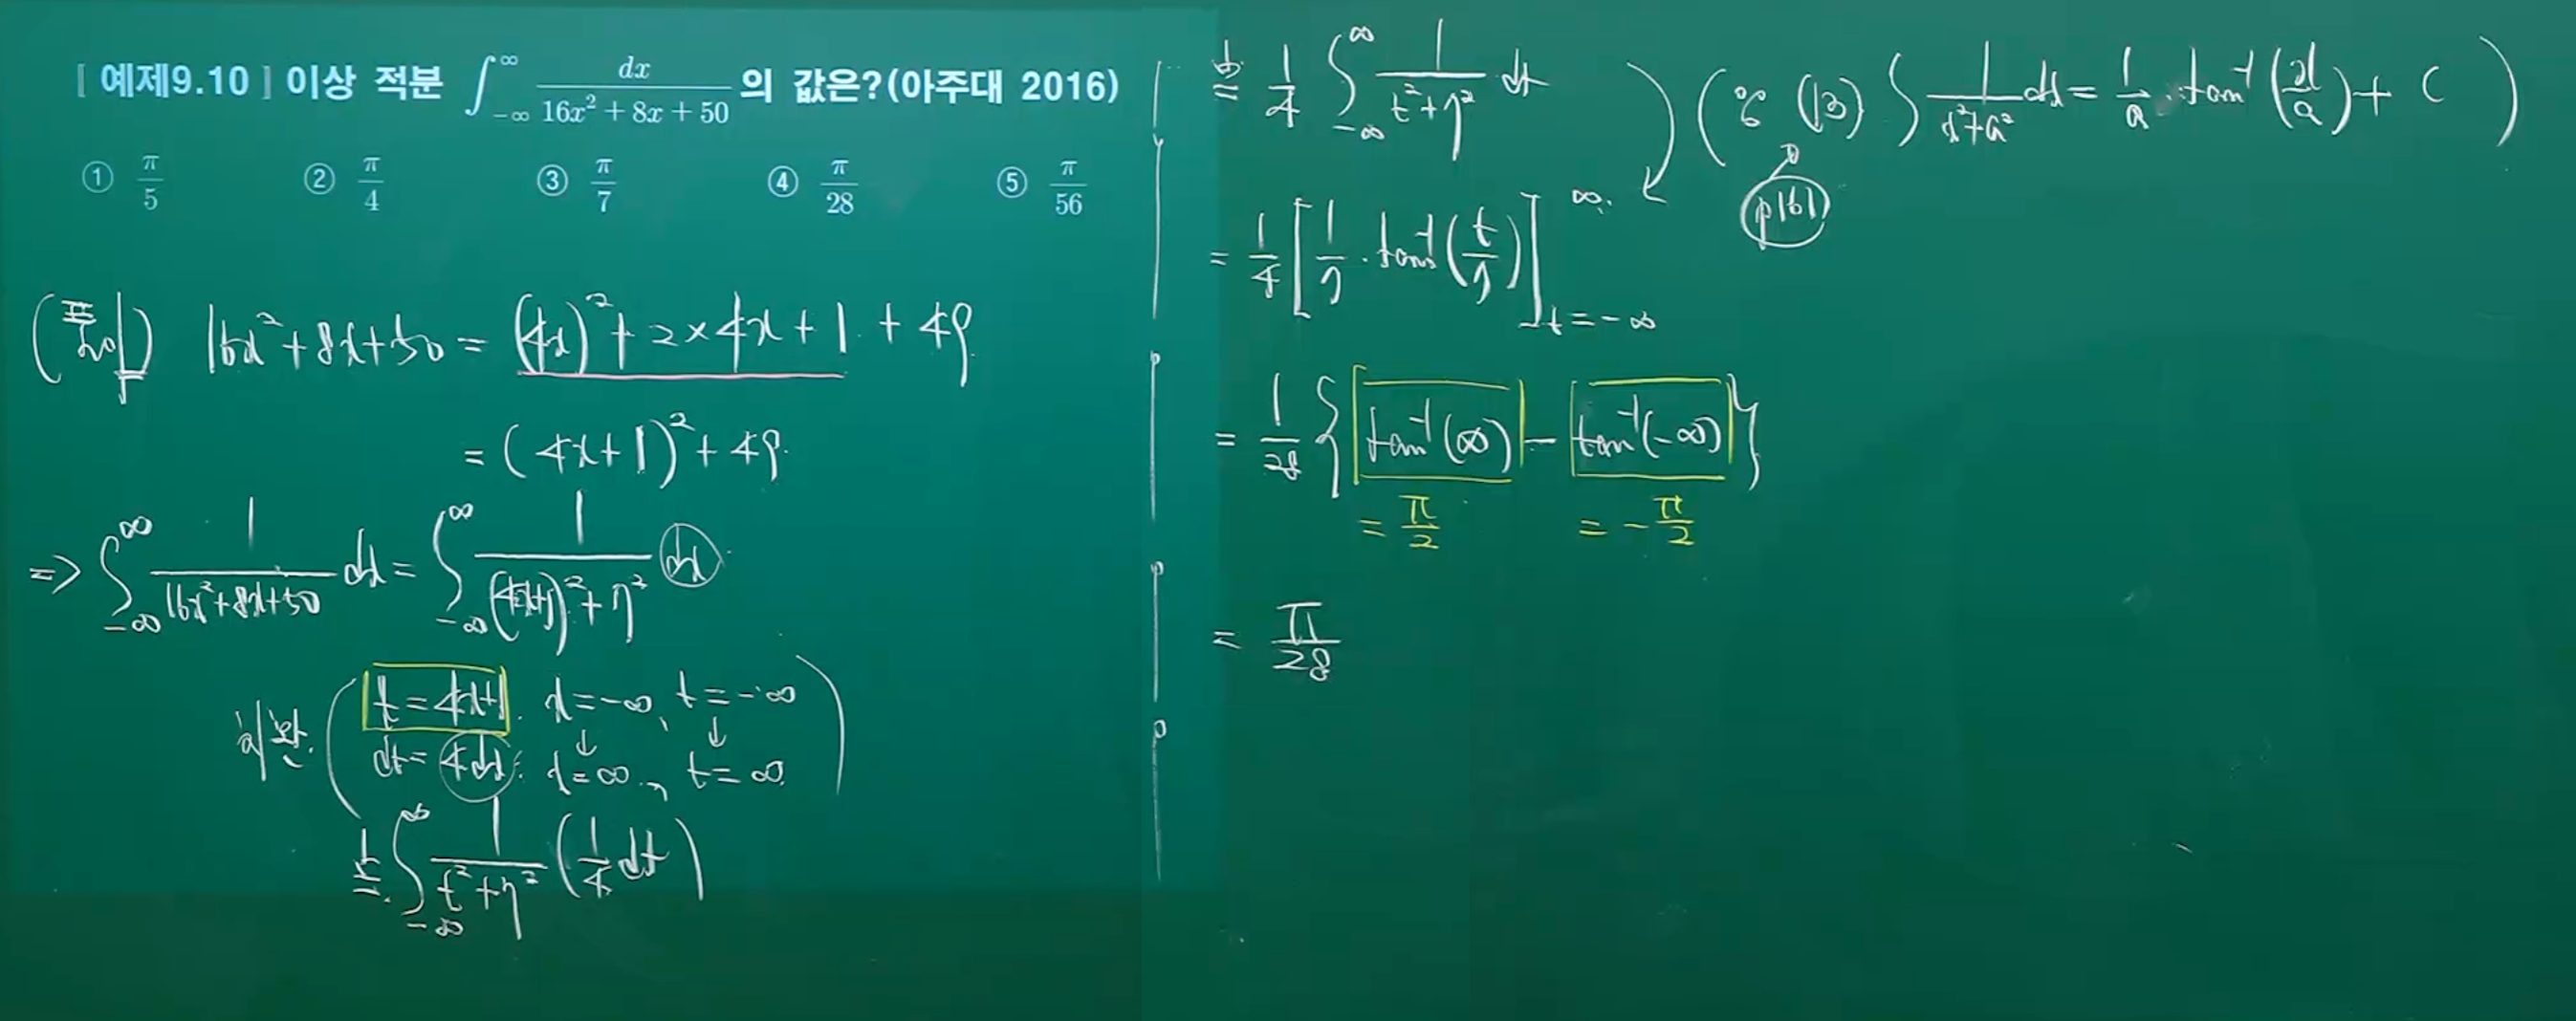 [ 예제9.10 ] 이상 적분 ∫_{-∞}^{∞} dx/(16x² + 8x + 50) 의 값은?(아주대 2016)
① π/5 ② π/4 ③ π/7 ④ π/28 ⑤ π/56
(풀이) 16x²+8x+50 = (4x)²+2×4x+1+49
= (4x+1)²+49
=> ∫_{-∞}^{∞} 1/(16x²+8x+50) dx = ∫_{-∞}^{∞} 1/((4x+1)²+7²) dx
치환 ( t=4x+1, x=-∞, t=-∞
dt=4dx: ↓ ↓
x=∞, t=∞ )
= ∫_{-∞}^{∞} 1/(t²+7²) (1/4 dt)
= 1/4 ∫_{-∞}^{∞} 1/(t²+7²) dt
( (13) ∫ 1/(x²+a²) dx = 1/a · tan⁻¹(x/a) + C )
p161
= 1/4 [ 1/7 · tan⁻¹(t/7) ]_{t=-∞}^{∞}
= 1/28 { tan⁻¹(∞) - tan⁻¹(-∞) }
= π/2 = -π/2
= π/28